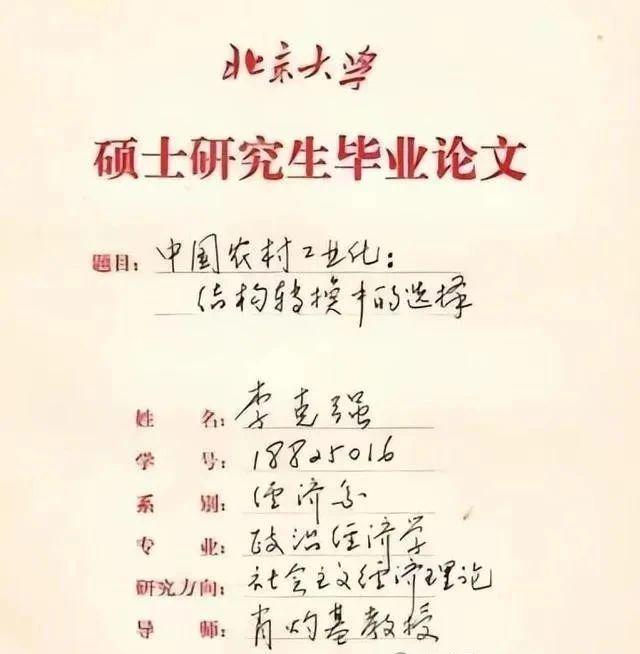 北京大学
硕士研究生毕业论文
题目：中国农村工业化：
结构转换中的选择
姓名：李克强
学号：18825016
系别：经济系
专业：政治经济学
研究方向：社会主义经济理论
导师：肖灼基教授